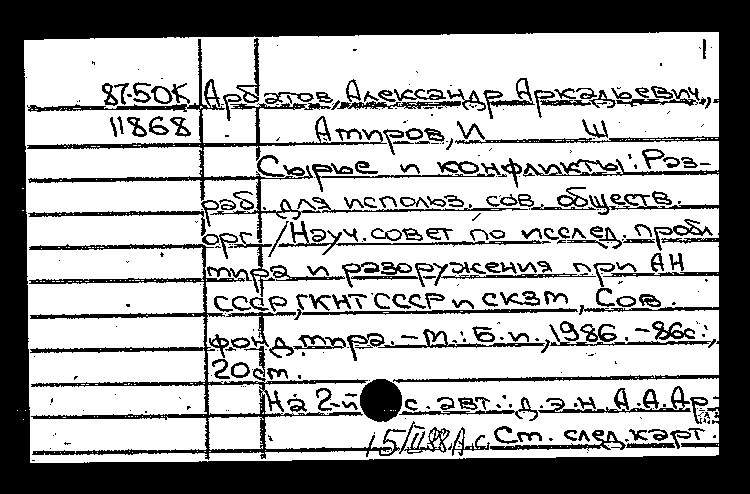 1
87-50К Арбатов, Александр Аркадьевич,
11868 Амиров, И Ш
Сырье и конфликты: Раз-
раб. для использ. сов. обществ.
орг. / Науч. совет по исслед. пробл.
мира и разоружения при АН
СССР, ГКНТ СССР и СКЗМ, Сов.
фонд мира. - М.: Б. и., 1986. - 86с.;
20см.
На 2-й с. авт.: д.э.н. А.А. Ар-
См. след. карт.